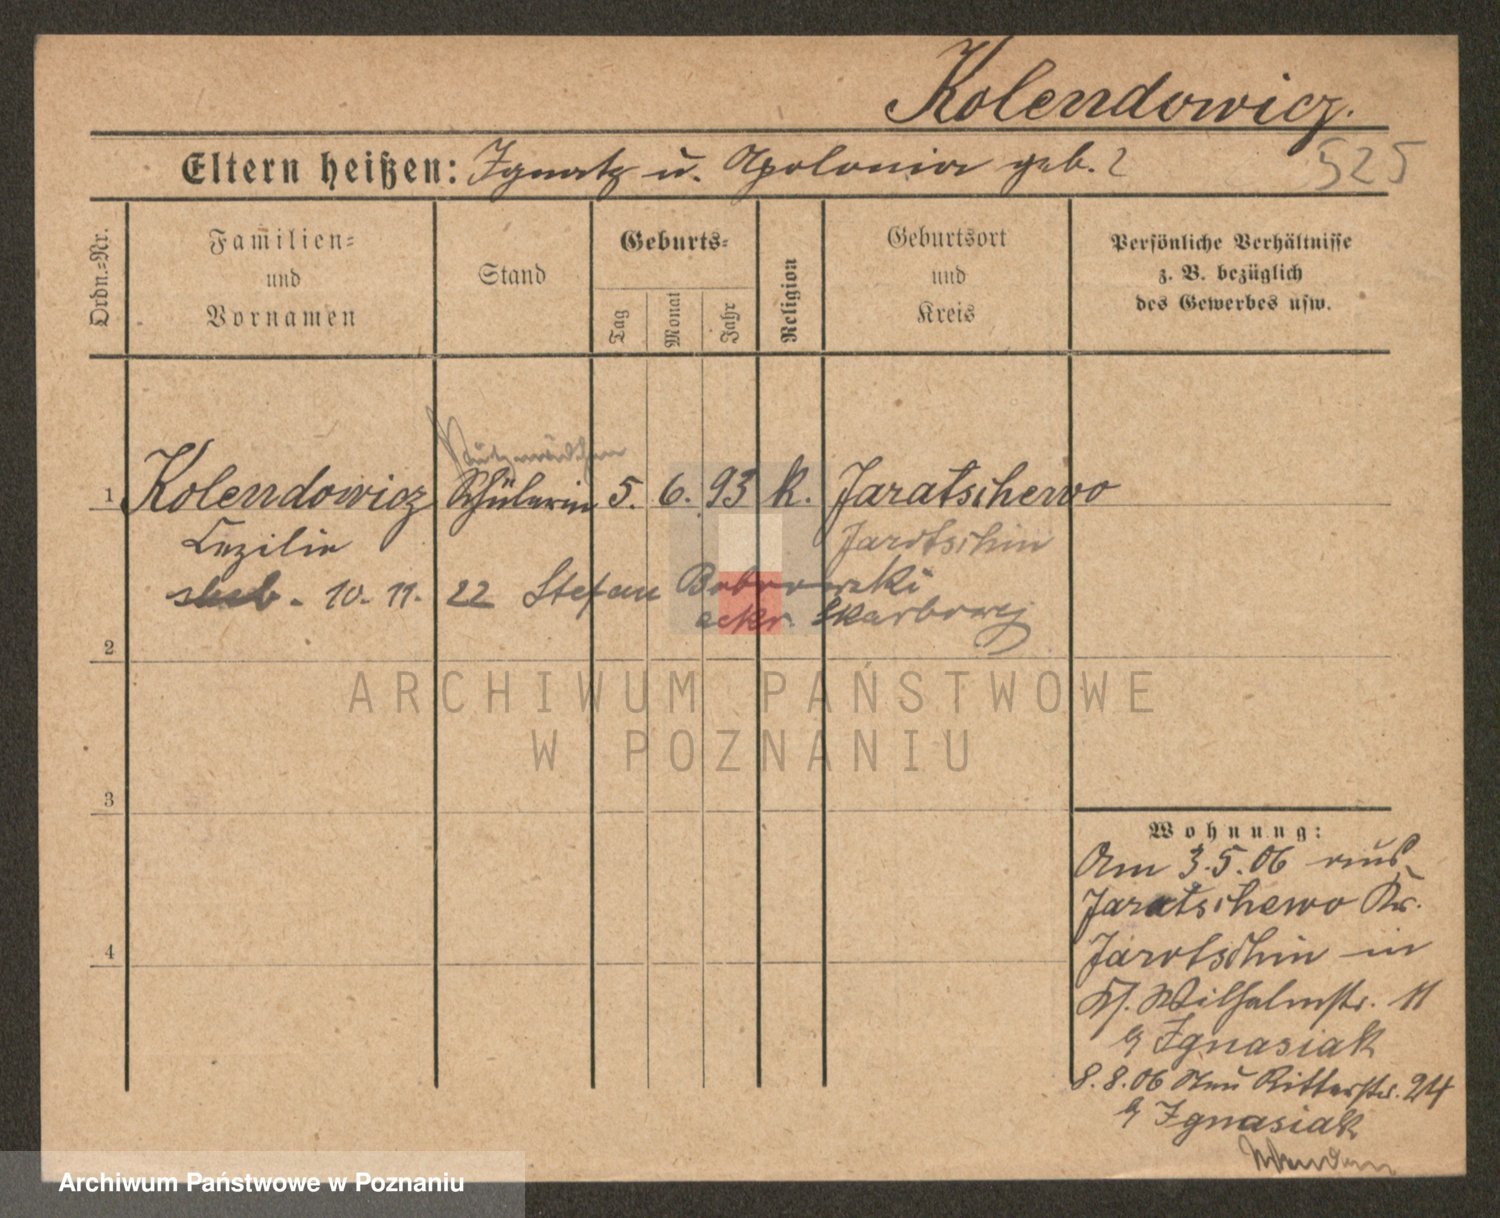 Kolendowicz.
Eltern heißen: Ignatz u. Apolonia geb. ?
525
Ordn.-Nr.
Familien- und Vornamen
Stand
Geburts-
Tag
Monat
Jahr
Religion
Geburtsort und Kreis
Persönliche Verhältnisse
z. B. bezüglich
des Gewerbes usw.
Putzmädchen
1 Kolendowicz Schülerin 5. 6. 93 k. Jaratschewo
Cezilie Jarotschin
10. 11. 22 Stefan Bobrowski
sekr. Skarbowy
2
3
4
Wohnung:
Am 3.5.06 aus
Jaratschewo Kr.
Jarotschin in
Wilhelmstr. 11
b Ignasiak
8.8.06 Neu Ritterstr. 24
b Ignasiak
ARCHIWUM PAŃSTWOWE
W POZNANIU
Archiwum Państwowe w Poznaniu